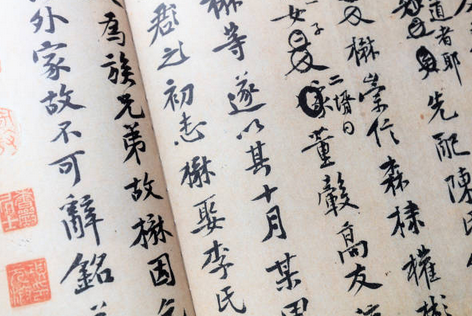 道者耶先配陳氏
楙崇信森棣權彬
女二壻曰董瑴高友
楙等遂以其十月某
君之初志楙娶李氏
為族兄弟故楙因
外家故不可辭銘